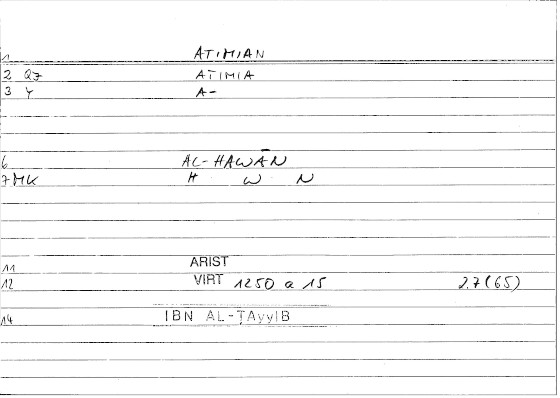 1 ATIMIAN
2 QZ ATIMIA
3 Y A-
6 AL-HAWĀN
7 MK H W N
11 ARIST
12 VIRT 1250 a 15 2.7(65)
14 IBN AL-ṬAyyIB